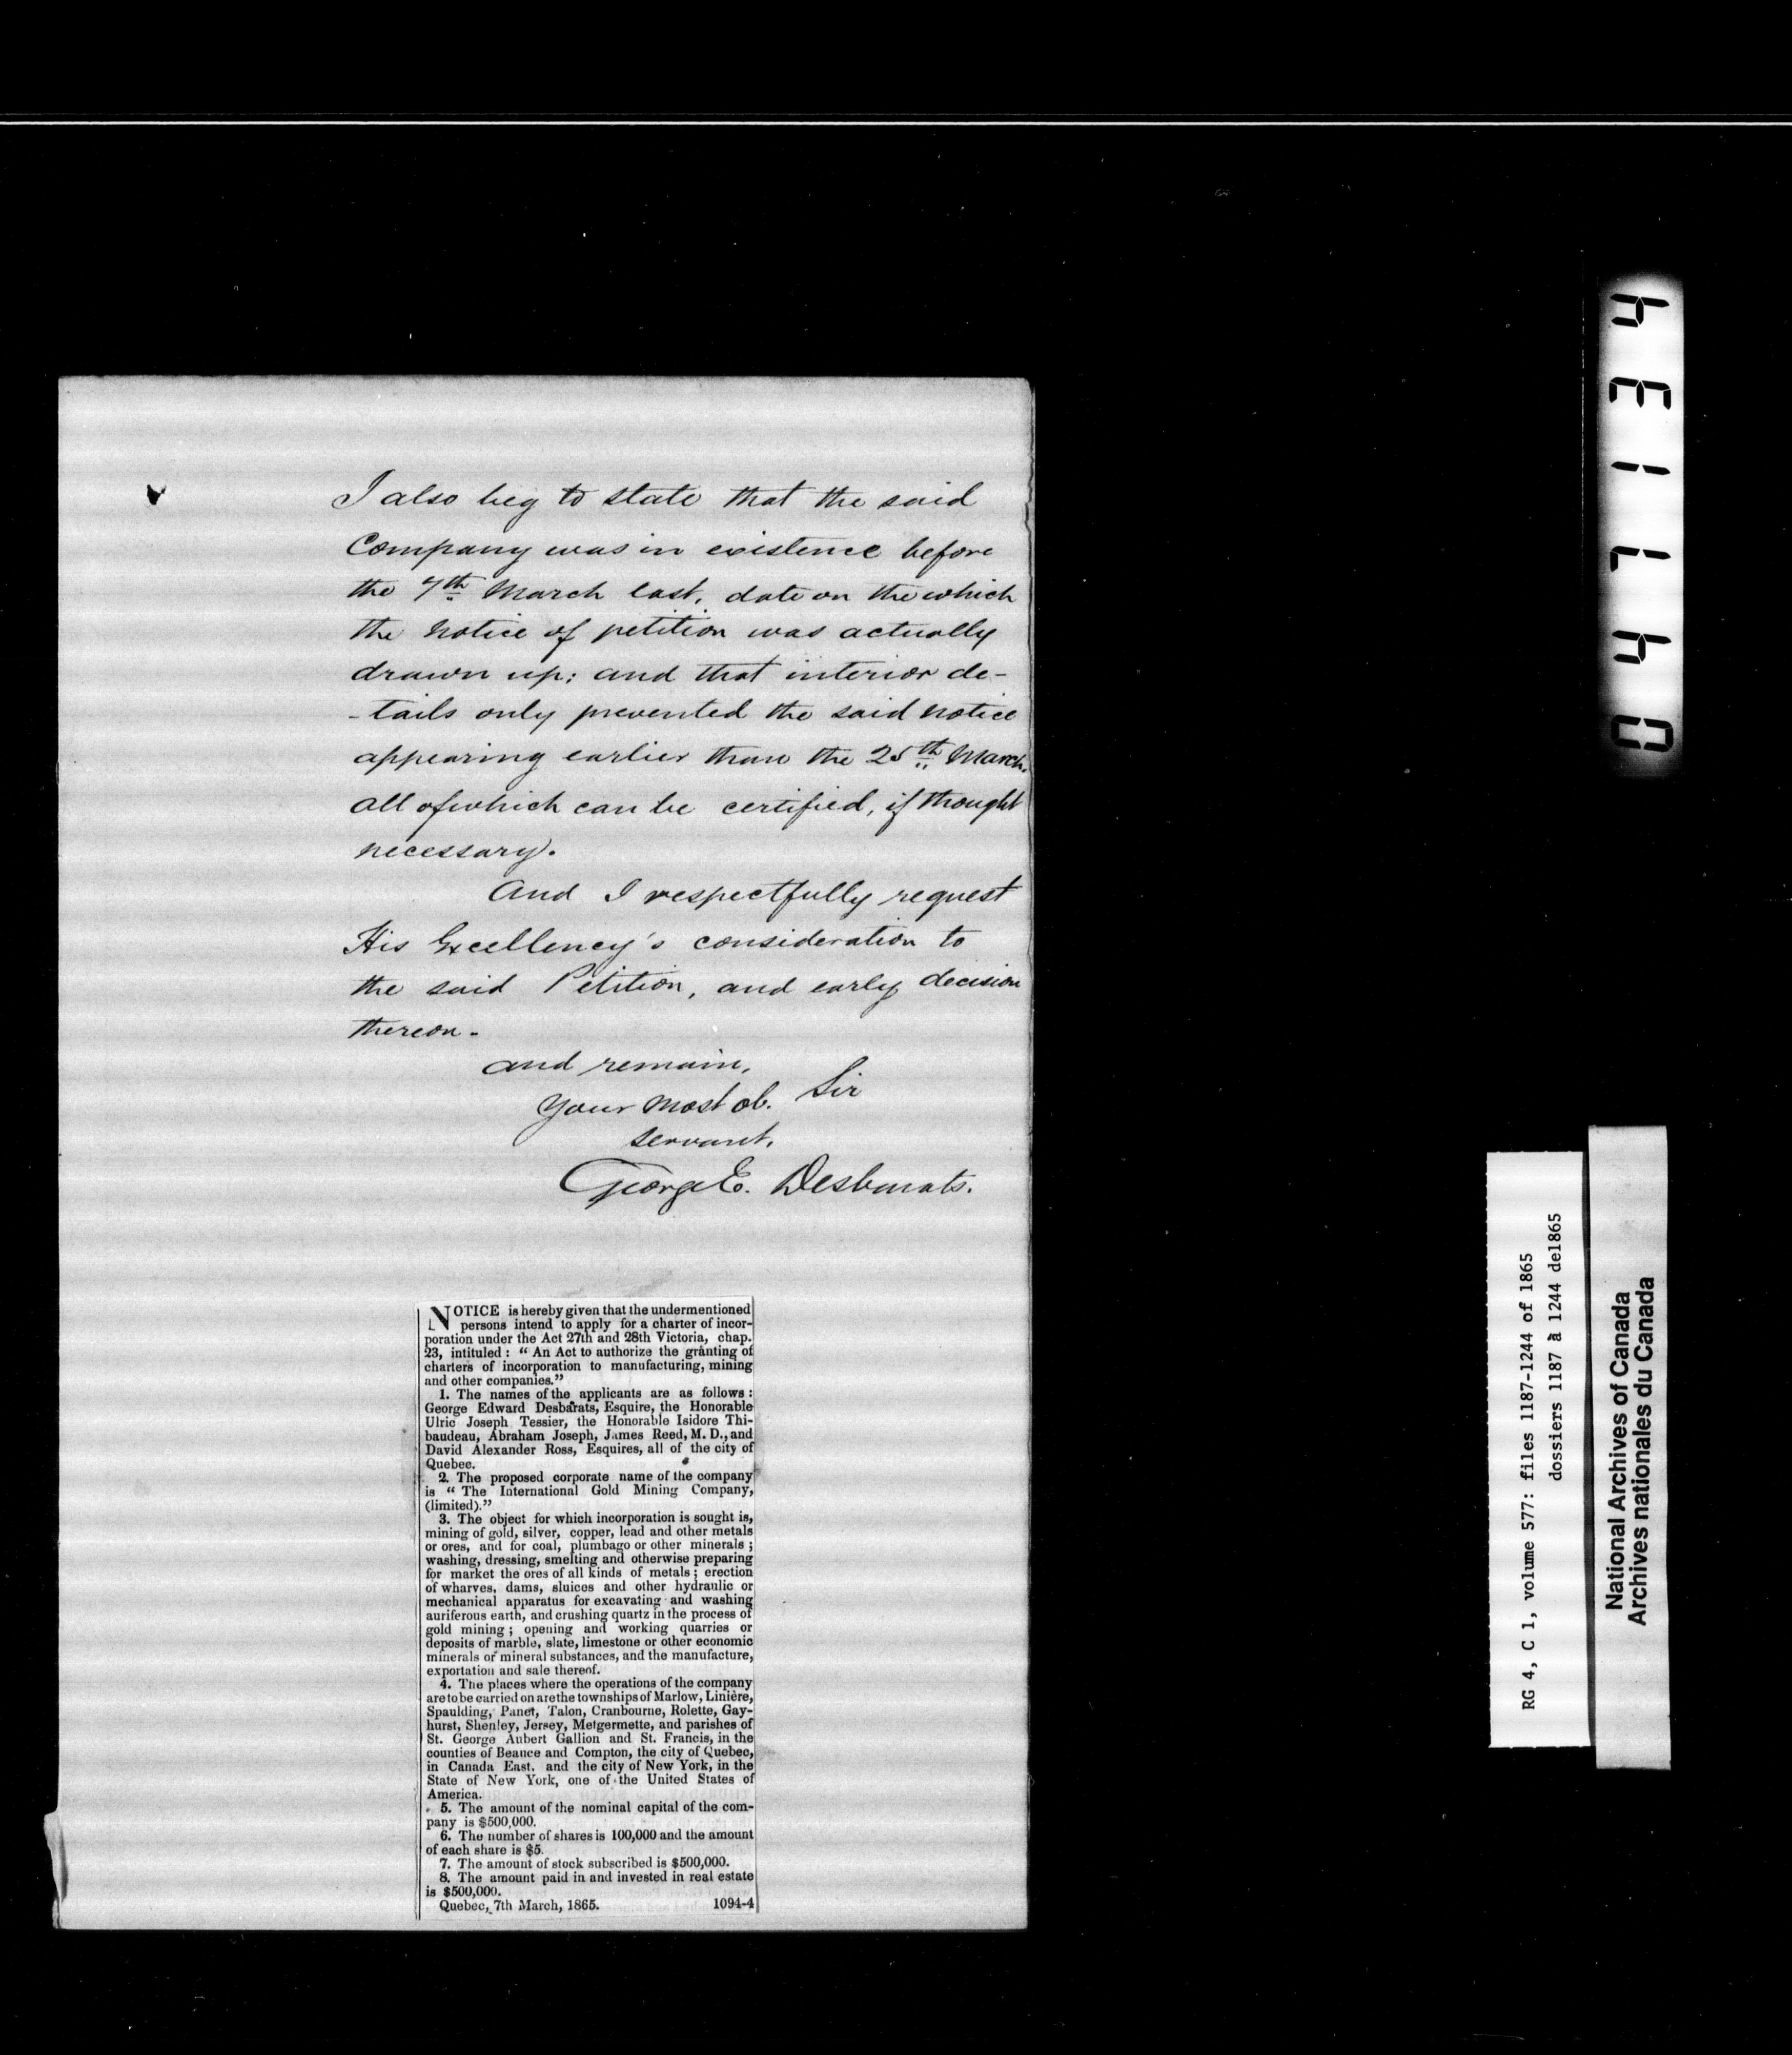 I also beg to state that the said
Company was in existence before
the 7th March last, date on the which
the notice of petition was actually
drawn up; and that interior de-
-tails only prevented the said notice
appearing earlier than the 25th March,
all of which can be certified, if thought
necessary.
And I respectfully request
His Excellency's consideration to
the said Petition, and early decision
thereon -
and remain,
Sir
Your most ob.
servant,
George E. Desbarats.
NOTICE is hereby given that the undermentioned
persons intend to apply for a charter of incor-
poration under the Act 27th and 28th Victoria, chap.
23, intituled : “ An Act to authorize the granting of
charters of incorporation to manufacturing, mining
and other companies.”
1. The names of the applicants are as follows :
George Edward Desbarats, Esquire, the Honorable
Ulric Joseph Tessier, the Honorable Isidore Thi-
baudeau, Abraham Joseph, James Reed, M. D., and
David Alexander Ross, Esquires, all of the city of
Quebec.
2. The proposed corporate name of the company
is “ The International Gold Mining Company,
(limited).”
3. The object for which incorporation is sought is,
mining of gold, silver, copper, lead and other metals
or ores, and for coal, plumbago or other minerals ;
washing, dressing, smelting and otherwise preparing
for market the ores of all kinds of metals ; erection
of wharves, dams, sluices and other hydraulic or
mechanical apparatus for excavating and washing
auriferous earth, and crushing quartz in the process of
gold mining ; opening and working quarries or
deposits of marble, slate, limestone or other economic
minerals or mineral substances, and the manufacture,
exportation and sale thereof.
4. The places where the operations of the company
are to be carried on are the townships of Marlow, Linière,
Spaulding, Panet, Talon, Cranbourne, Rolette, Gay-
hurst, Shenley, Jersey, Metgermette, and parishes of
St. George Aubert Gallion and St. Francis, in the
counties of Beauce and Compton, the city of Quebec,
in Canada East, and the city of New York, in the
State of New York, one of the United States of
America.
5. The amount of the nominal capital of the com-
pany is $500,000.
6. The number of shares is 100,000 and the amount
of each share is $5.
7. The amount of stock subscribed is $500,000.
8. The amount paid in and invested in real estate
is $500,000.
Quebec, 7th March, 1865. 1094-4
047134
RG 4, C 1, volume 577: files 1187-1244 of 1865
dossiers 1187 à 1244 de1865
National Archives of Canada
Archives nationales du Canada